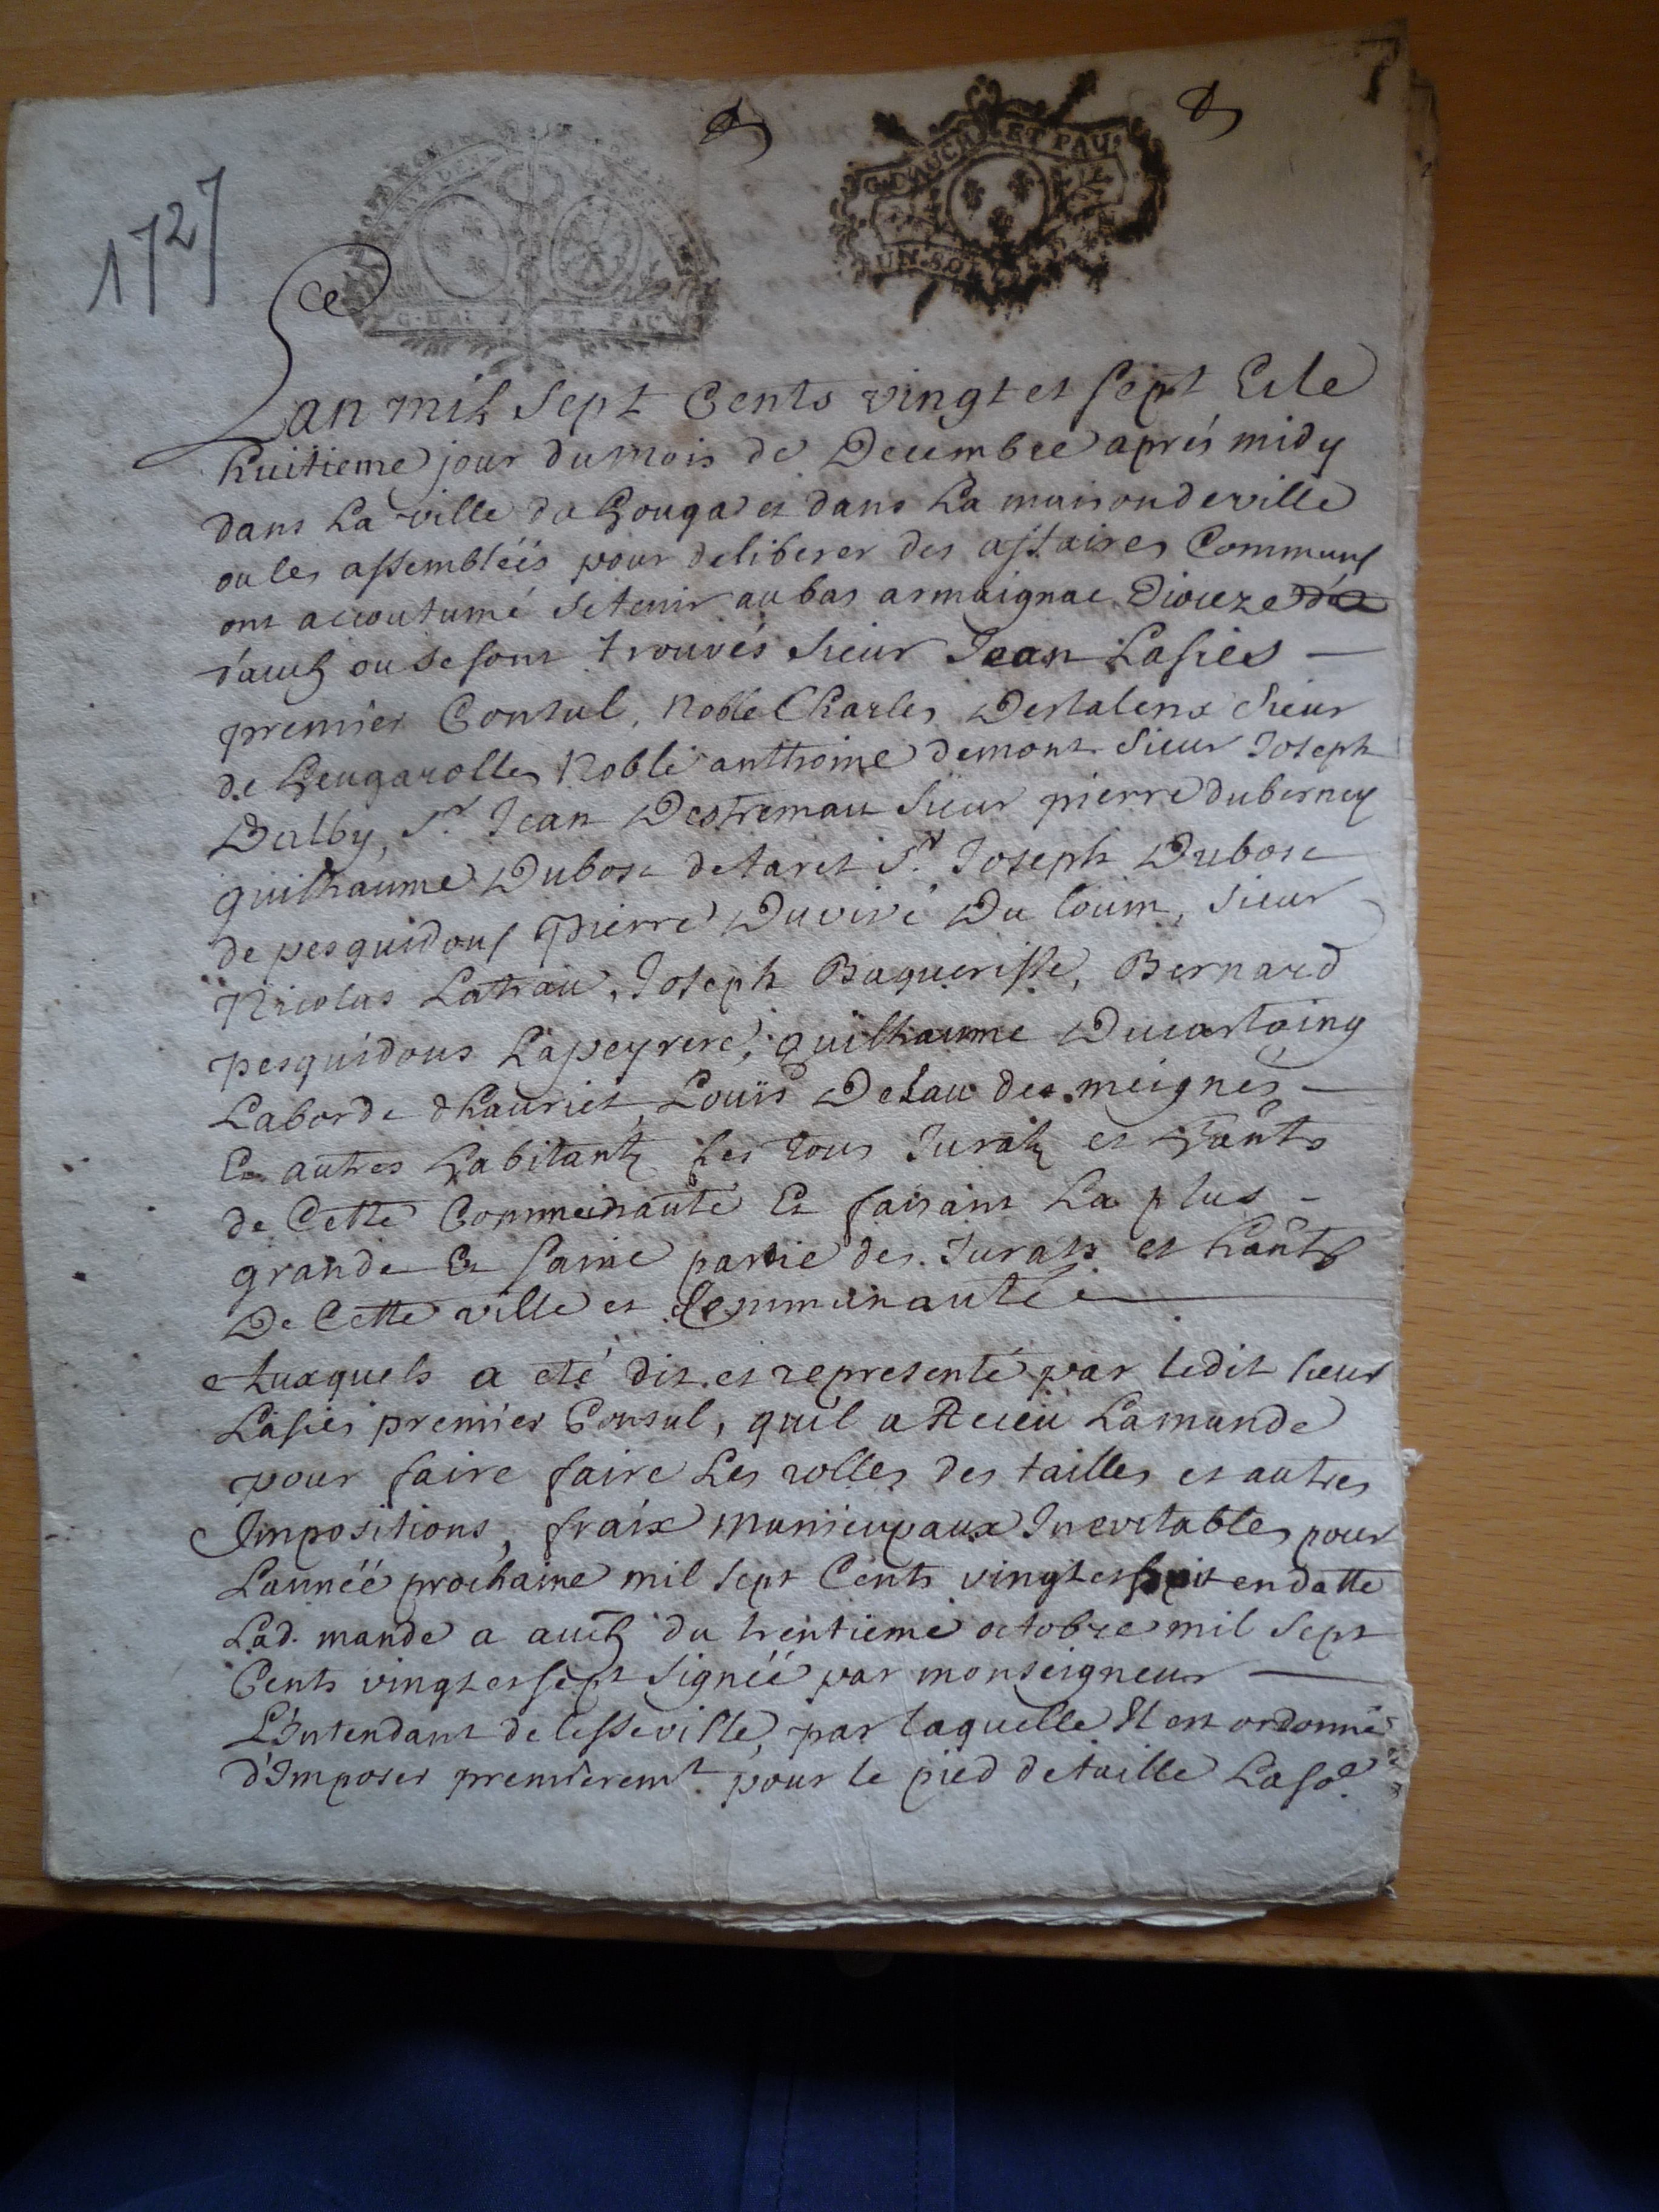 1727
G. D'AUCH ET PAU
UN SOL
G. D'AU ET PAU
Lan mil sept Cents vingt et sept Et le
huitieme jour du mois de Decembre aprés midy
dans La ville da houga et dans La maison de ville
ou les assembléés pour deliberer des affaires Communs
ont accoutumé se tenir au bas armaignac Diocéze
d'auch ou se sont trouvés sieur Jean Lasies
premier Consul, Noble Charles Destalens sieur
de Leugarolles Noble anthoine demont sieur Joseph
Dalby, Sr. Jean Destremau sieur pierre duberney
guilhaume Dubosc detaret Sr. Joseph Dubosc
de pesquidous pierre Duviné Du Couim, sieur
Nicolas Latrau, Joseph Baquerisse, Bernard
pesquidous Lapeyrere, guilhaume Ducastaing
Laborde dhauriet, Louis Delau des meignes
Et autres habitants les tous Jurats et hants
de Cette Communauté Et faisant La plus
grande Et saine partie des Jurats et hants
De Cette ville et Communauté
Auxquels a eté dit et representé par ledit sieur
Lasies premier Consul, quil a Receu La mande
pour faire faire Les rolles des tailles et autres
Impositions, fraix municipaux Inevitables pour
Lannéé prochaine mil sept Cents vingt et huit en datte
Lad. mande a auch du trentieme octobre mil sept
Cents vingt et sept signéé par monseigneur
L'Intendant de lesseville, par laquelle Il est ordonné
d'Imposer premierement. pour le pied de taille La so.e